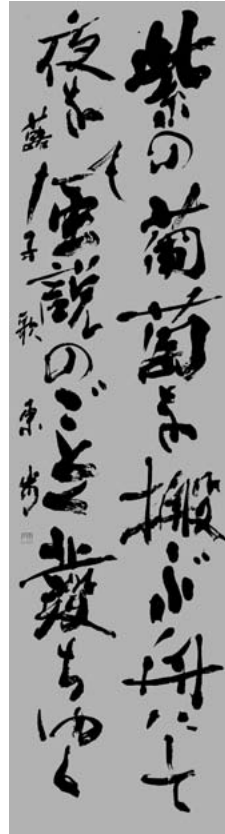 紫の葡萄を搬ぶ舟にして
夜を風説のごとく發ちゆく
蕗子歌